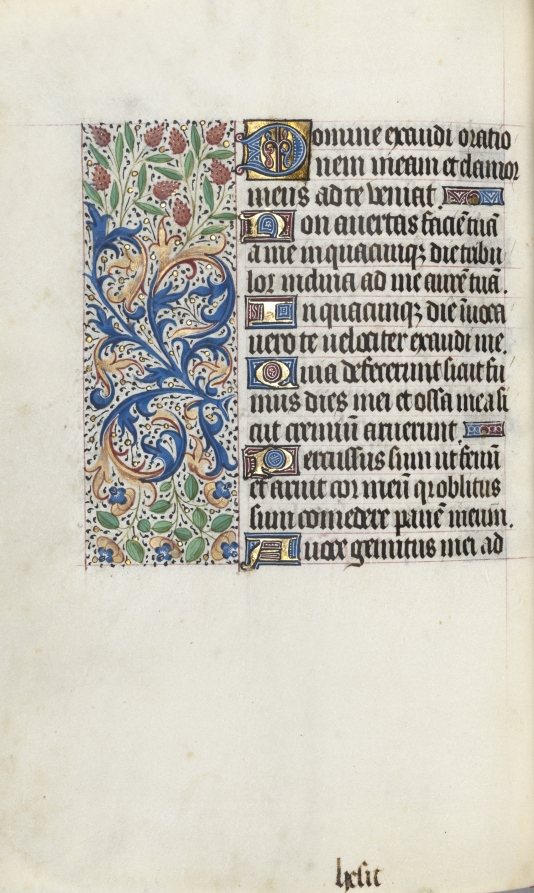 Domine exaudi oratio
nem meam et clamor
meus ad te veniat
Non avertas faciē tuā
a me in quacūnqꝫ die tribu
lor inclina ad me aurē tuā.
In quacūnqꝫ die īuoca
uero te uelociter exaudi me
Quia defecerunt sicut fu
mus dies mei et ossa mea si
cut cremiū aruerunt
Percussus sum ut fenū
et aruit cor meū qꝛ oblitus
sum comedere panē meum.
A uoce gemitus mei ad